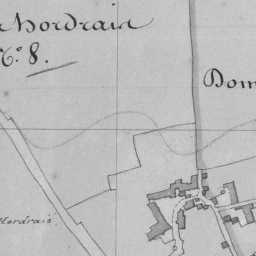 Hordrain
N.º 8.
Dom
Hordrain